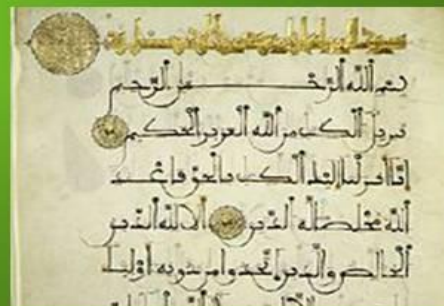 سورة
بسم الله الرحمن الرحيم
تنزيل الكتب من الله العزيز الحكيم
إنا أنزلنا إليك الكتب بالحق فاعبد
الله مخلصا له الدين ألا لله الدين
الخالص والذين اتخذوا من دونه أوليا